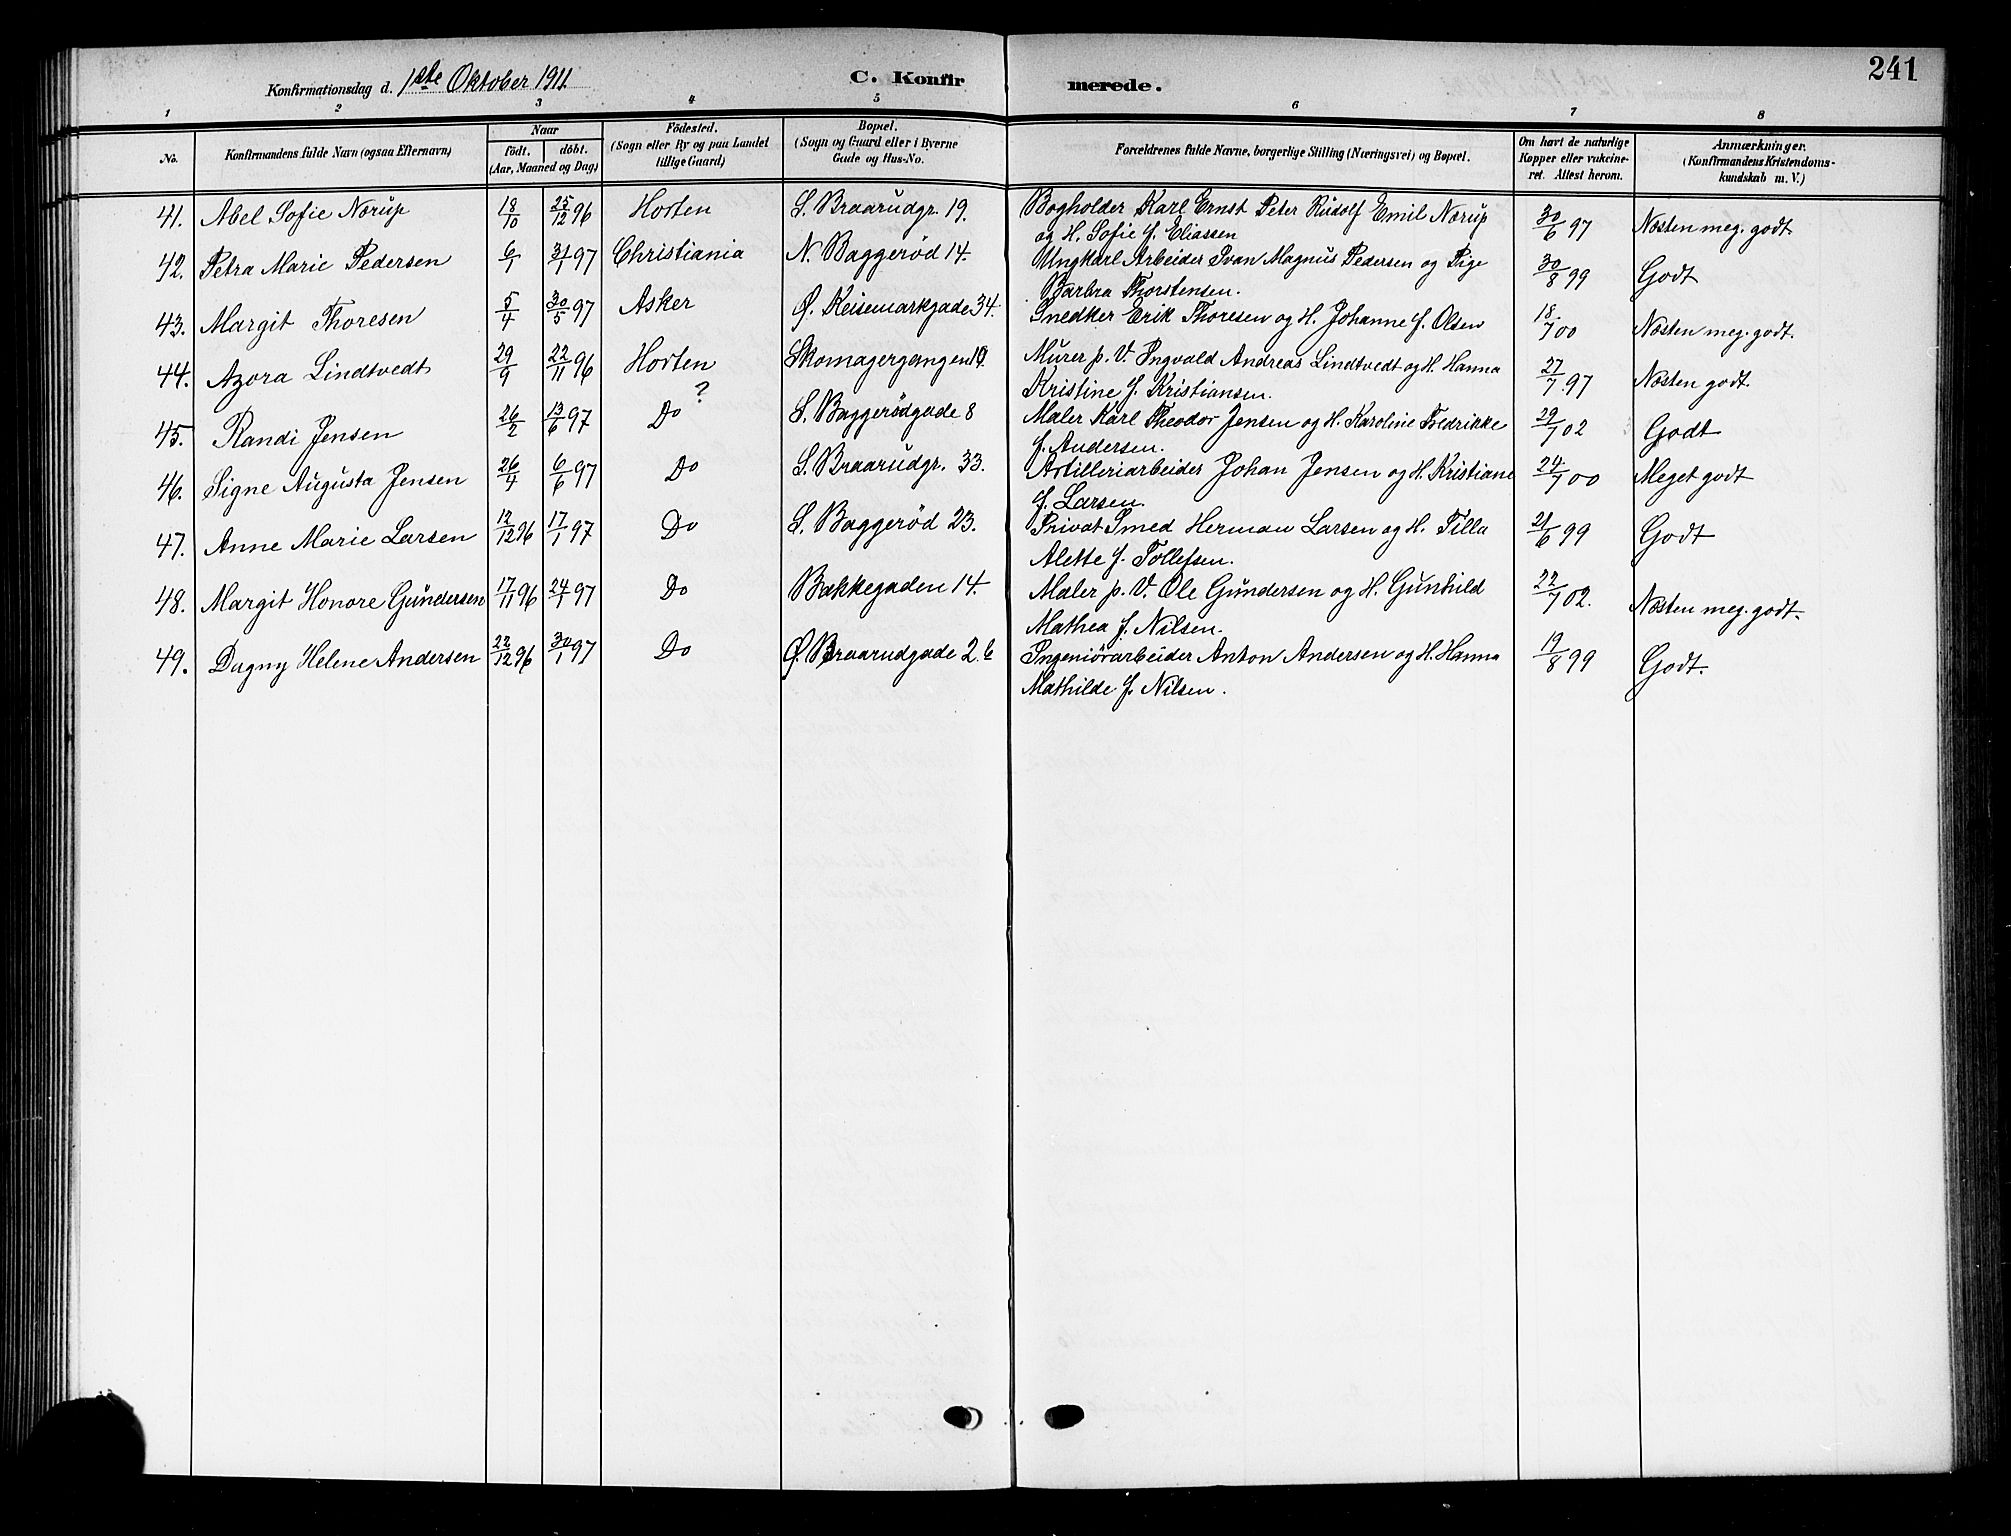 241
Konfirmationsdag d. 1ste Oktober 1911.
C. Konfirmerede.
1 2 3 4 5 6 7 8
No. Konfirmandens fulde Navn (ogsaa Efternavn) Naar födt. döbt. (Aar, Maaned og Dag) Födested. (Sogn eller By og paa Landet tillige Gaard) Bopæl. (Sogn og Gaard eller i Byerne Gade og Hus-No. Forældrenes fulde Navne, borgerlige Stilling (Næringsvei) og Bopæl. Om havt de naturlige Kopper eller vakcineret. Attest herom. Anmærkninger. (Konfirmandens Kristendomskundskab m. V.)
41. Abel Sofie Nørup 18/10 25/12 96 Horten S. Braarudgr. 19. Bogholder Karl Ernst Peter Rudolf Emil Nørup 30/6 97 Næsten meg. godt
og H. Sofie f. Eliassen
42. Petra Marie Pedersen 6/1 31/1 97 Christiania N. Baggerød 14. Ungkarl Arbeider Ivan Magnus Pedersen og Pige 30/8 99 Godt
Barbra Thorstensen.
43. Margit Thoresen 5/4 30/5 97 Asker Ø. Keisemarkgade 34. Snedker Erik Thoresen og H. Johanne f. Olsen 18/7 00 Næsten meg. godt.
44. Azora Lindtvedt 29/9 22/11 96 Horten Skomagergangen Murer p. V. Ingvald Andreas Lindtvedt og H. Hanna 27/7 97 Næsten godt.
Kristine f. Kristiansen.
45. Randi Jensen 26/2 13/6 97 ? Do S. Baggerødgade 8 Maler Karl Theodor Jensen og H. Karoline Fredrikke 29/7 02 Godt
f. Andersen.
46. Signe Augusta Jensen 26/4 6/6 97 Do S. Braarudgr. 33. Artilleriarbeider Johan Jensen og H. Kristiane 24/7 00 Meget godt
f. Larsen.
47. Anne Marie Larsen 12/12 96 17/1 97 Do S. Baggerød 23. Privat Smed Herman Larsen og H. Tilla 21/6 99 Godt
Alette f. Tollefsen.
48. Margit Honore Gundersen 17/11 96 24/1 97 Do Bakkegaden 14. Maler p. V. Ole Gundersen og H. Gunhild 22/7 02. Næsten meg. godt.
Mathea f. Nilsen.
49. Dagny Helene Andersen 22/12 96 30/1 97 Do Ø. Braarudgade 26 Ingeniörarbeider Anton Andersen og H. Hanna 19/8 99 Godt.
Mathilde f. Nilsen.